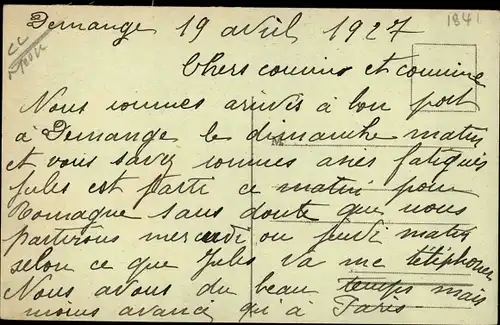 Demange 19 avril 1927
1841
Chers cousins et cousine
Nous sommes arrivés à bon port
à Demange le dismanche matin
M
et vous savez sommes assez fatigués
Jules est parti ce matin pour
Romagne sans doute que nous
partirons mercredi ou jeudi matin
selon ce que Jules va me téléphoner
Nous avons du beau temps mais
moins avancé qu'à Paris